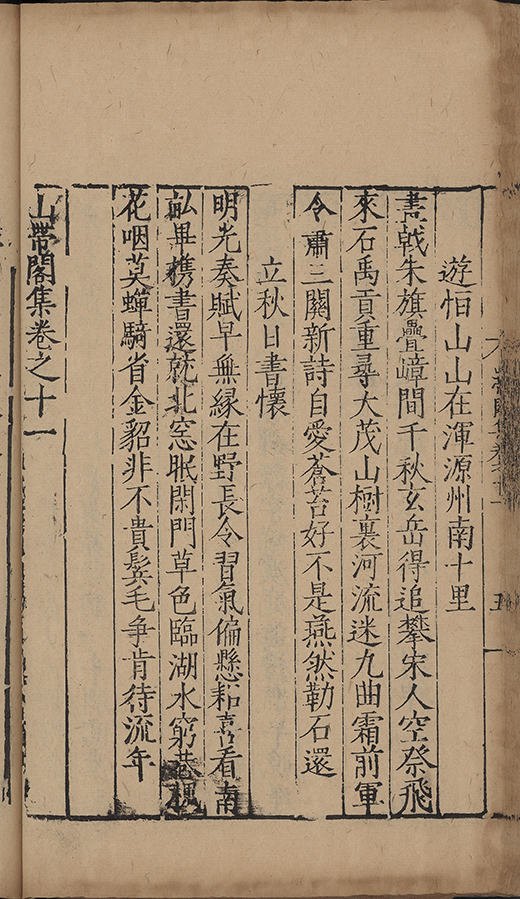 遊恒山山在渾源州南十里
畫戟朱旗疊嶂間千秋玄岳得追攀宋人空祭飛
來石禹貢重尋大茂山樹裏河流迷九曲霜前軍
令肅三關新詩自愛蒼苔好不是燕然勒石還
立秋日書懷
明光奏賦早無緣在野長令習氣偏懸耜喜看南
畆畢携書還就北窓眠閑門草色臨湖水窮巷槐
花咽莫蟬騎省金貂非不貴鬢毛爭肯待流年
山帶閣集卷之十一